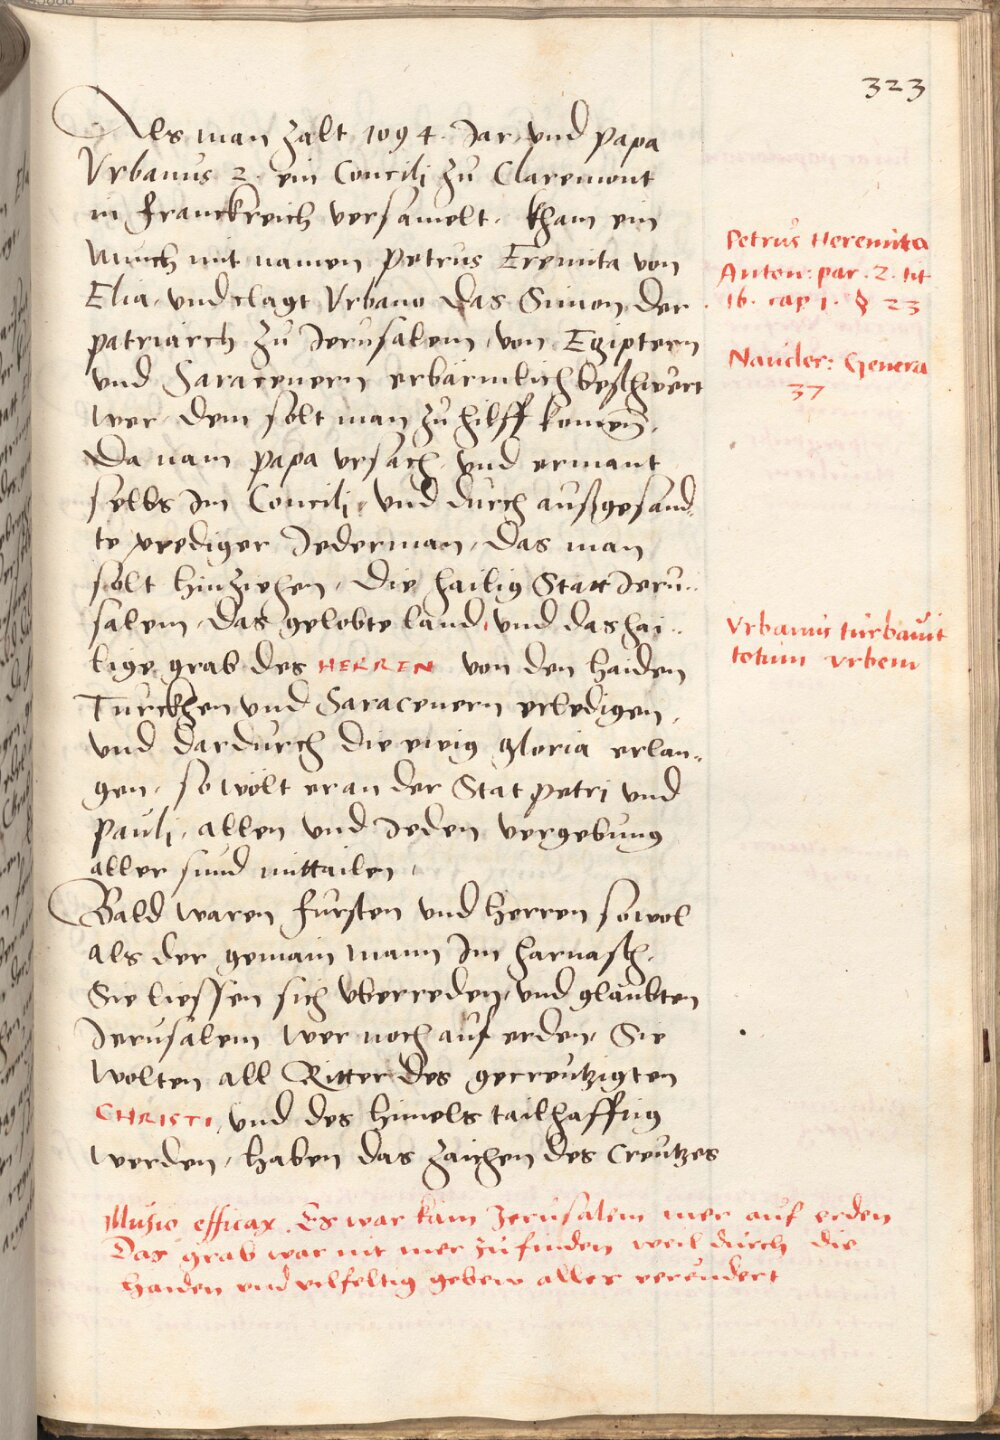 323
Als man zalt 1094. Jar, und papa
Vrbanus 2. ein Concilj zu Claremont
in Franckreich versamelt. kham ein
Munch mit namen Petrus Eremita von
Elia, und clagt Vrbano das Simon der
patriarch zu Jerusalem, von Egiptern
und Saracenern erbärmlich beschwert
wer. dem solt man zu hilff komen.
Da nam papa ursach, und ermant
selbs Im Concilj, und durch außgesand-
te prediger Jederman, das man
solt hinziehen, die hailig Statt Jeru-
salem, das gelobte land, und das hai-
lige grab des HERREN von den haiden
Turckhen und Saracenern erledigen,
und dardurch die ewig gloria erlan-
gen. so wölt er an der Stat petri und
pauli, allen und Jeden vergebung
aller sund mittailen.
Bald waren fursten und herren sowol
als der gemain mann Im harnasch.
Sie liessen sich uberreden, und glaubten
Jerusalem wer noch auf erden, Sie
wolten all Ritter des gecreutzigten
CHRISTI, und des himels tailhafftig
werden, haben das zaichen des Creutzes
Petrus Heremita
Anton: par. 2. tit
16. cap 1. § 23
Naucler: Genera
37
Vrbanus turbavit
totum urbem
Illusio efficax. Es war kain Jerusalem mer auf erden
Das grab war nit mer zufinden weil durch die
haiden und vilfeltig gebew alles verendert